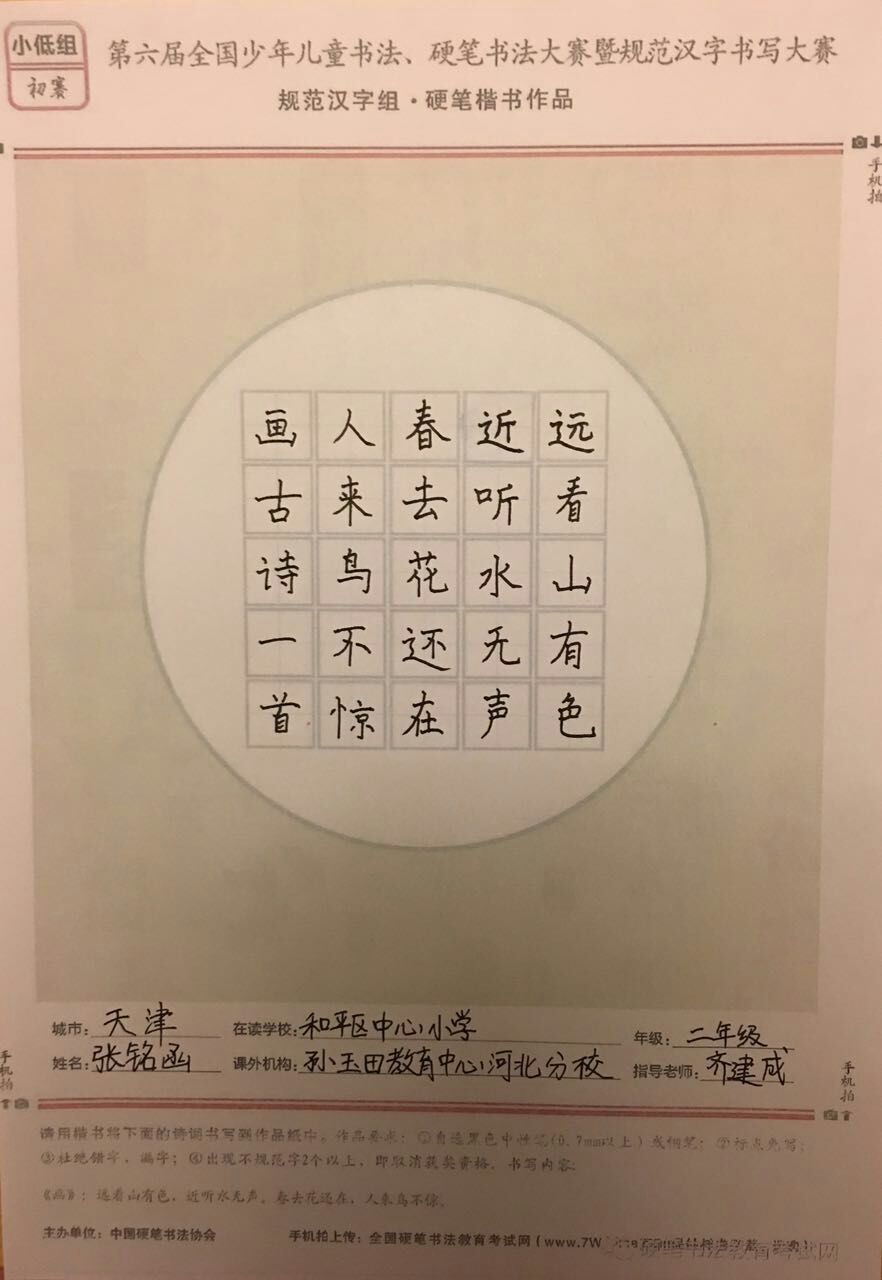 小低组
初赛
第六届全国少年儿童书法、硬笔书法大赛暨规范汉字书写大赛
规范汉字组·硬笔楷书作品
手机拍
远看山有色
近听水无声
春去花还在
人来鸟不惊
画古诗一首
城市：天津 在读学校：和平区中心小学 年级：二年级
姓名：张铭函 课外机构：孙玉田教育中心河北分校 指导老师：齐建成
手机拍
手机拍
请用楷书将下面的诗词书写到作品纸中。作品要求：①自选黑色中性笔(0.7mm以上)或钢笔；②标点免写；
③杜绝错字，漏字；④出现不规范字2个以上，即取消获奖资格。书写内容：
《画》：远看山有色，近听水无声。春去花还在，人来鸟不惊。
主办单位：中国硬笔书法协会 手机拍上传：全国硬笔书法教育考试网(www.7W
硬笔书法教育考试网